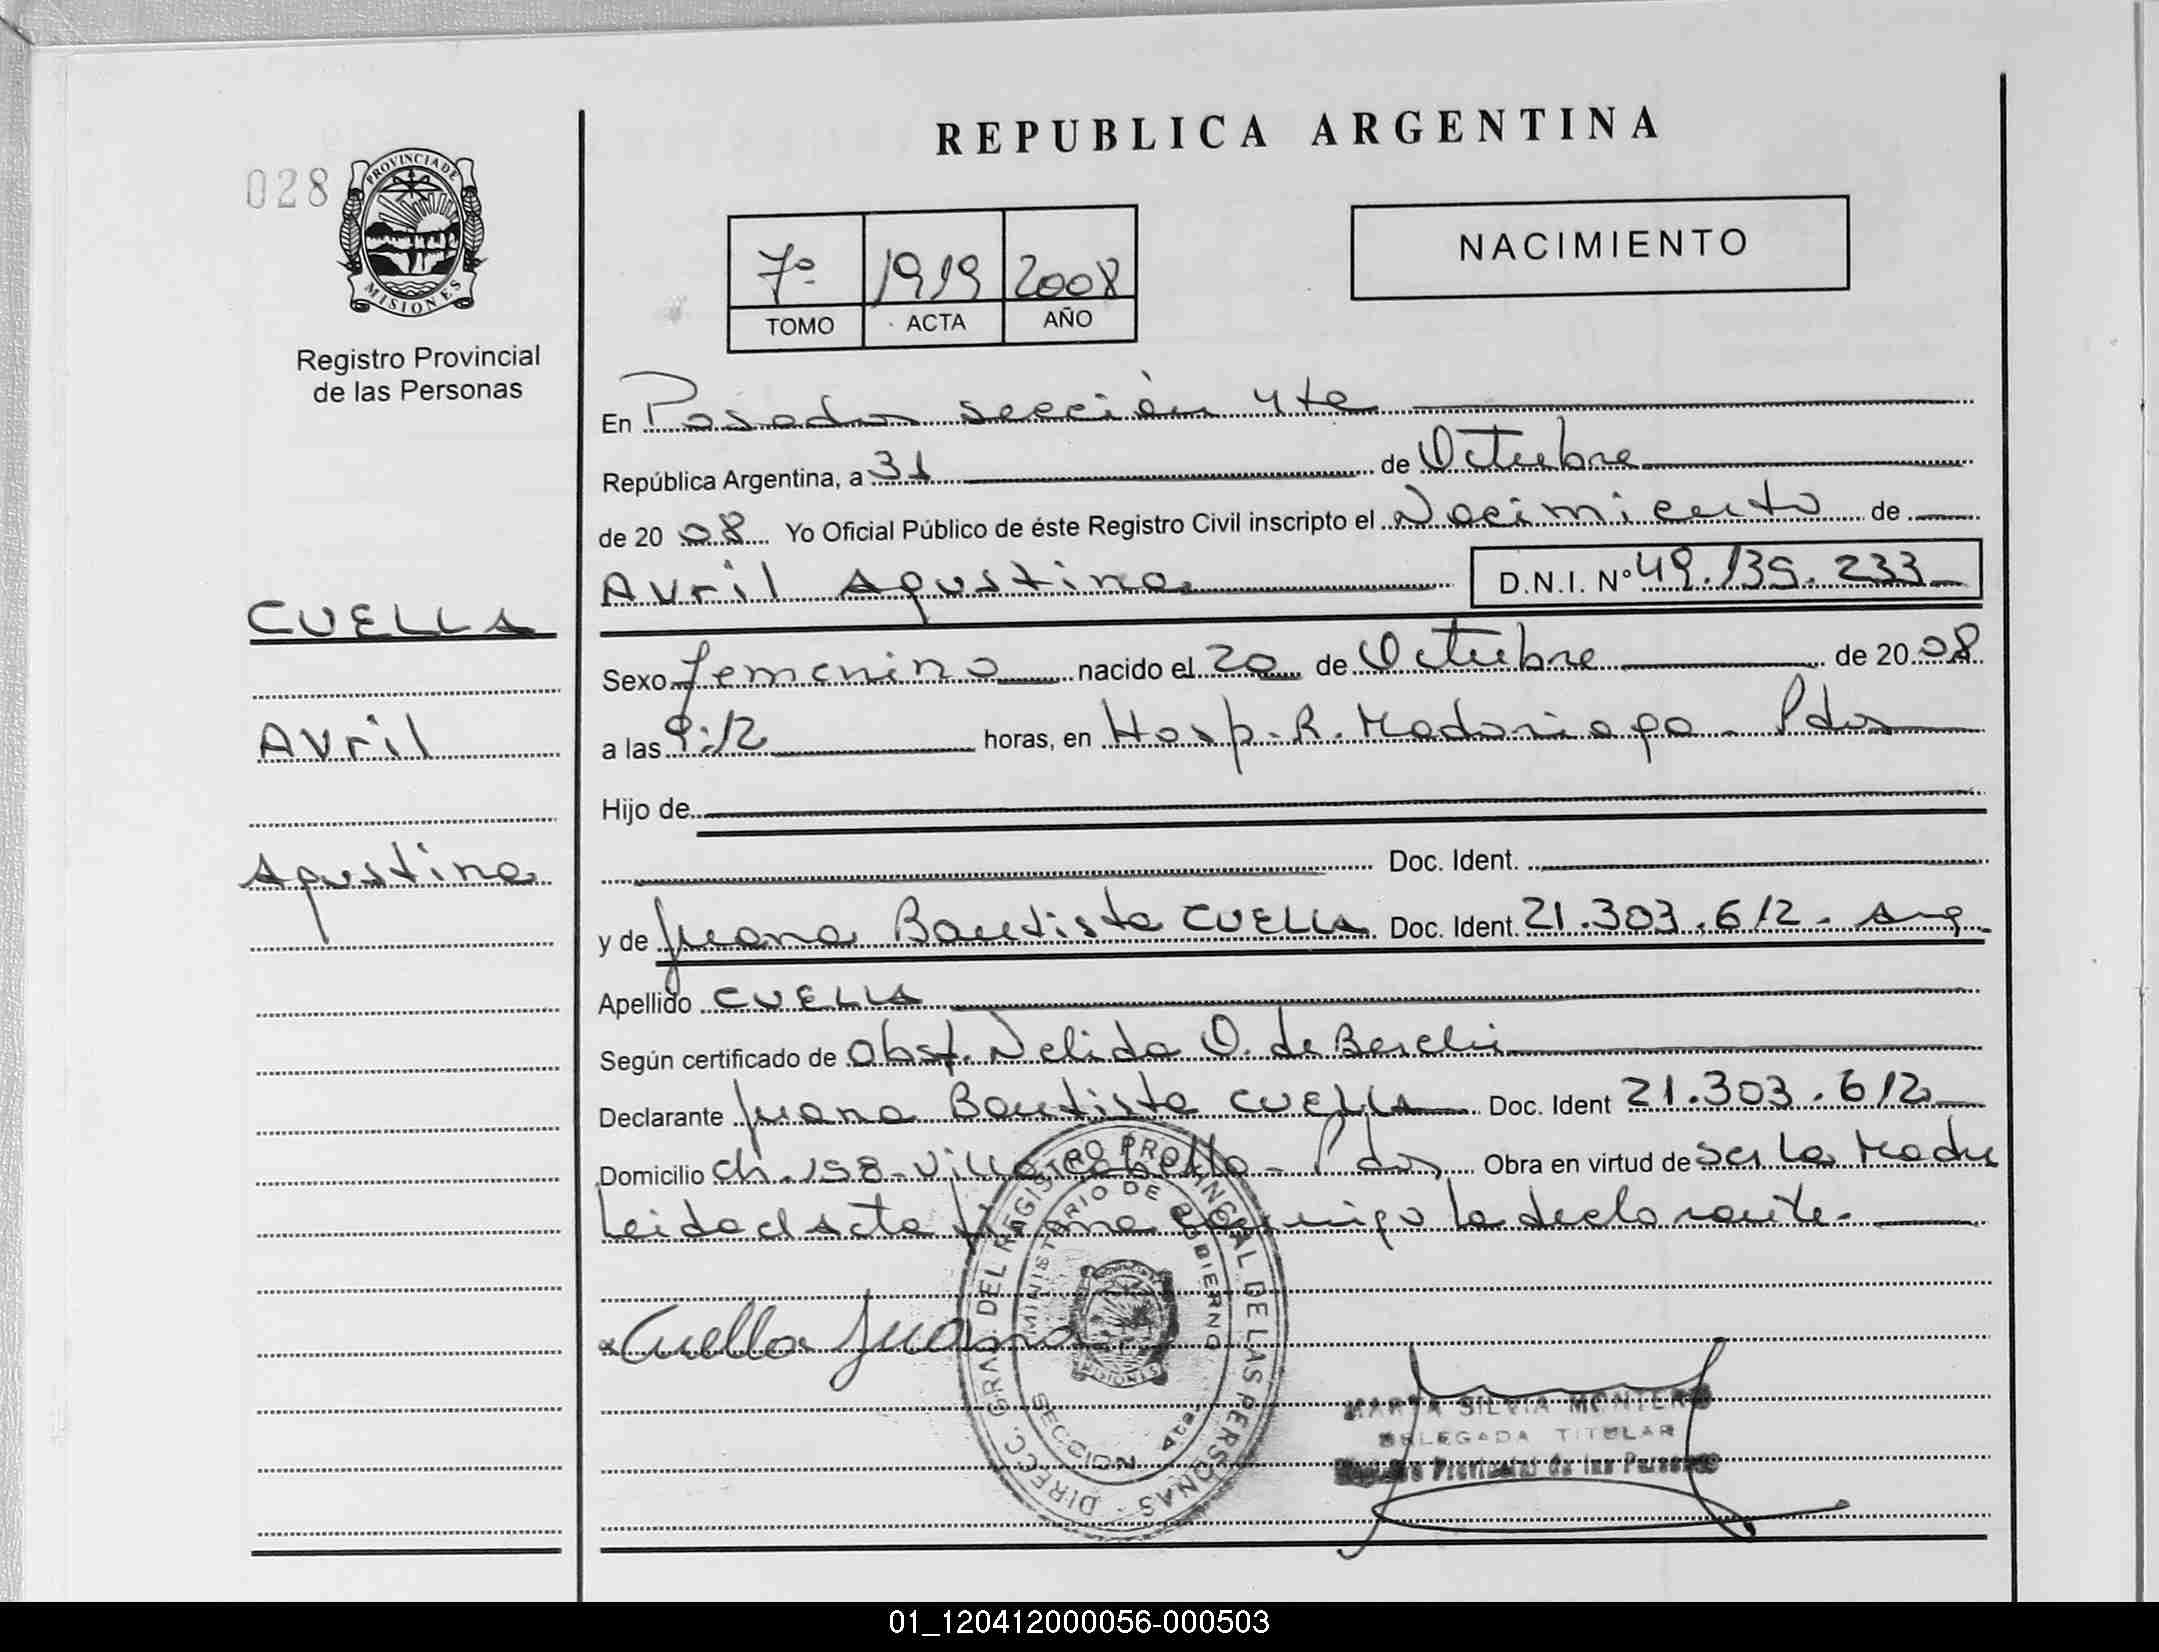 REPUBLICA ARGENTINA
028
PROVINCIA DE
MISIONES
Registro Provincial
de las Personas
NACIMIENTO
7º 1919 2008
TOMO ACTA AÑO
En Posadas sección 4ta
República Argentina, a 31 de Octubre
de 2008 Yo Oficial Público de éste Registro Civil inscripto el Nacimiento de
Avril Agustina D.N.I. Nº 49.139.233
CUELLA
Sexo femenino nacido el 20 de Octubre de 2008
Avril
a las 9:12 horas, en Hosp. R. Madariaga - Pdas
Hijo de
Agustina
Doc. Ident.
y de Juana Bautista CUELLA Doc. Ident. 21.303.612. Arg.
Apellido CUELLA
Según certificado de Obst. Nelida O. de
Declarante Juana Bautista CUELLA Doc. Ident 21.303.612
Domicilio Ch. 158-Villa Cabello - Pdas Obra en virtud de ser la Madre
Leida el Acta firma conmigo la declarante.
Cuella Juana
DIRECC. GRAL. DEL REGISTRO PROVINCIAL DE LAS PERSONAS
MINISTERIO DE GOBIERNO
MISIONES
SECCION 4ta
MARTA SILVIA MONTERO
DELEGADA TITULAR
Registro Provincial de las Personas
01_120412000056-000503